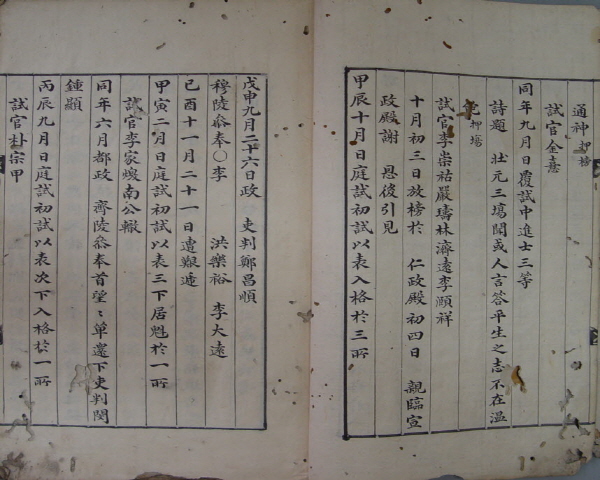 通神 押榜
試官金憙
同年九月日覆試中進士三等
詩題 壯元三塲聞或人言答平生之志不在溫
飽 押塲
試官李崇祜嚴璹林濟遠李頤祥
十月初三日放榜於 仁政殿初四日 親臨宣
政殿謝 恩後引見
甲辰十月日庭試初試以表入格於三所
戊申九月二十六日政 吏判鄭昌順
穆陵叅奉〇李 洪樂裕 李大遠
己酉十一月二十一日遭艱遞
甲寅二月日庭試初試以表三下居魁於一所
試官李家煥南公轍
同年六月都政 齊陵叅奉首望〻單遷下吏判閔
鍾顯
丙辰九月日庭試初試以表次下入格於一所
試官朴宗甲